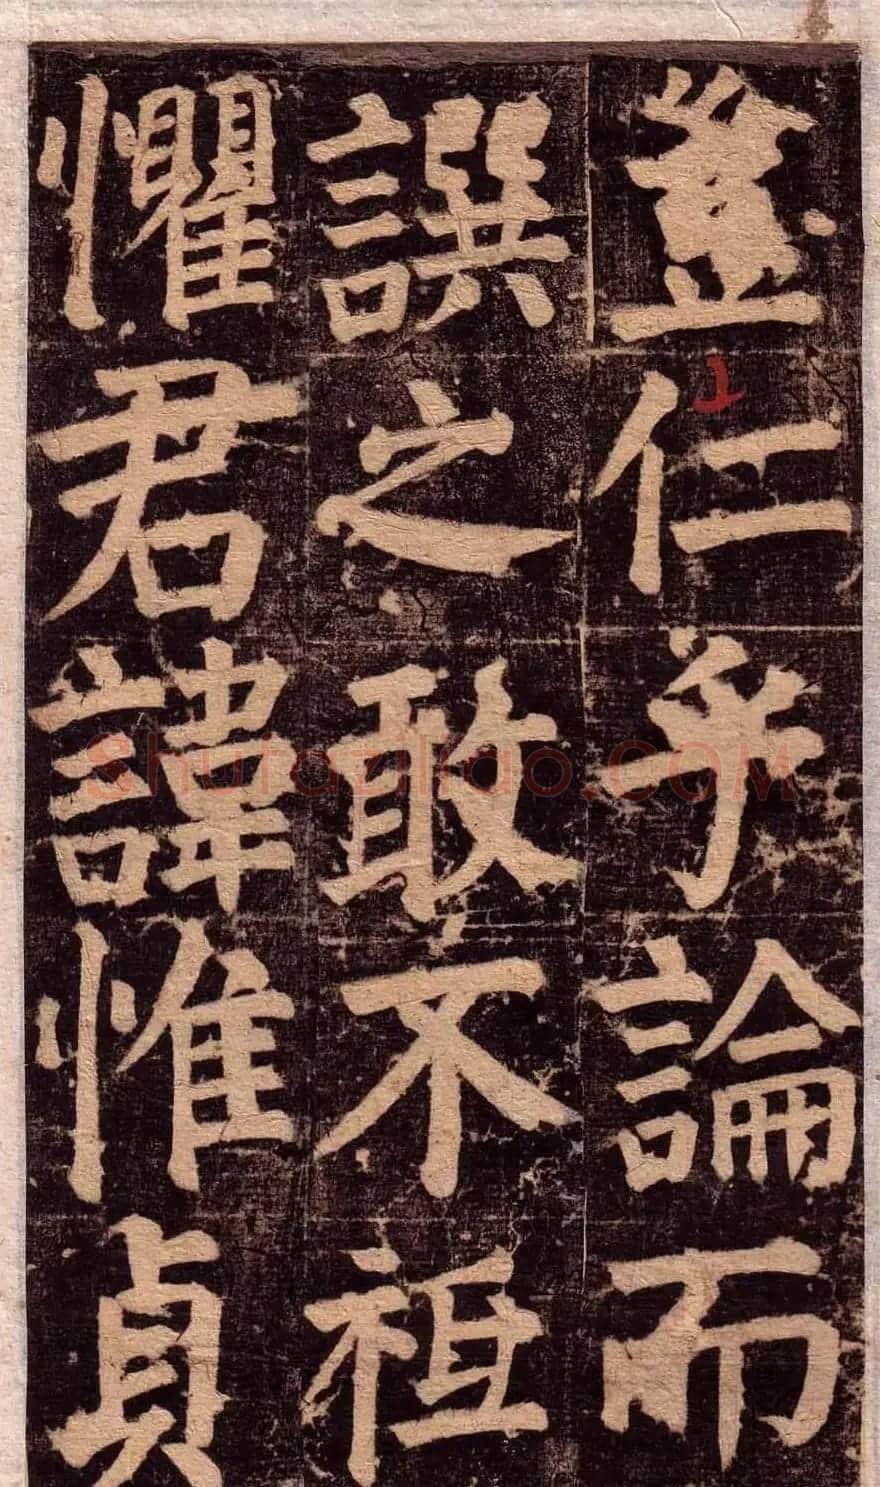 盖仁乎論而
譔之敢不祗
懼君諱惟貞
Shufaziliao.COM